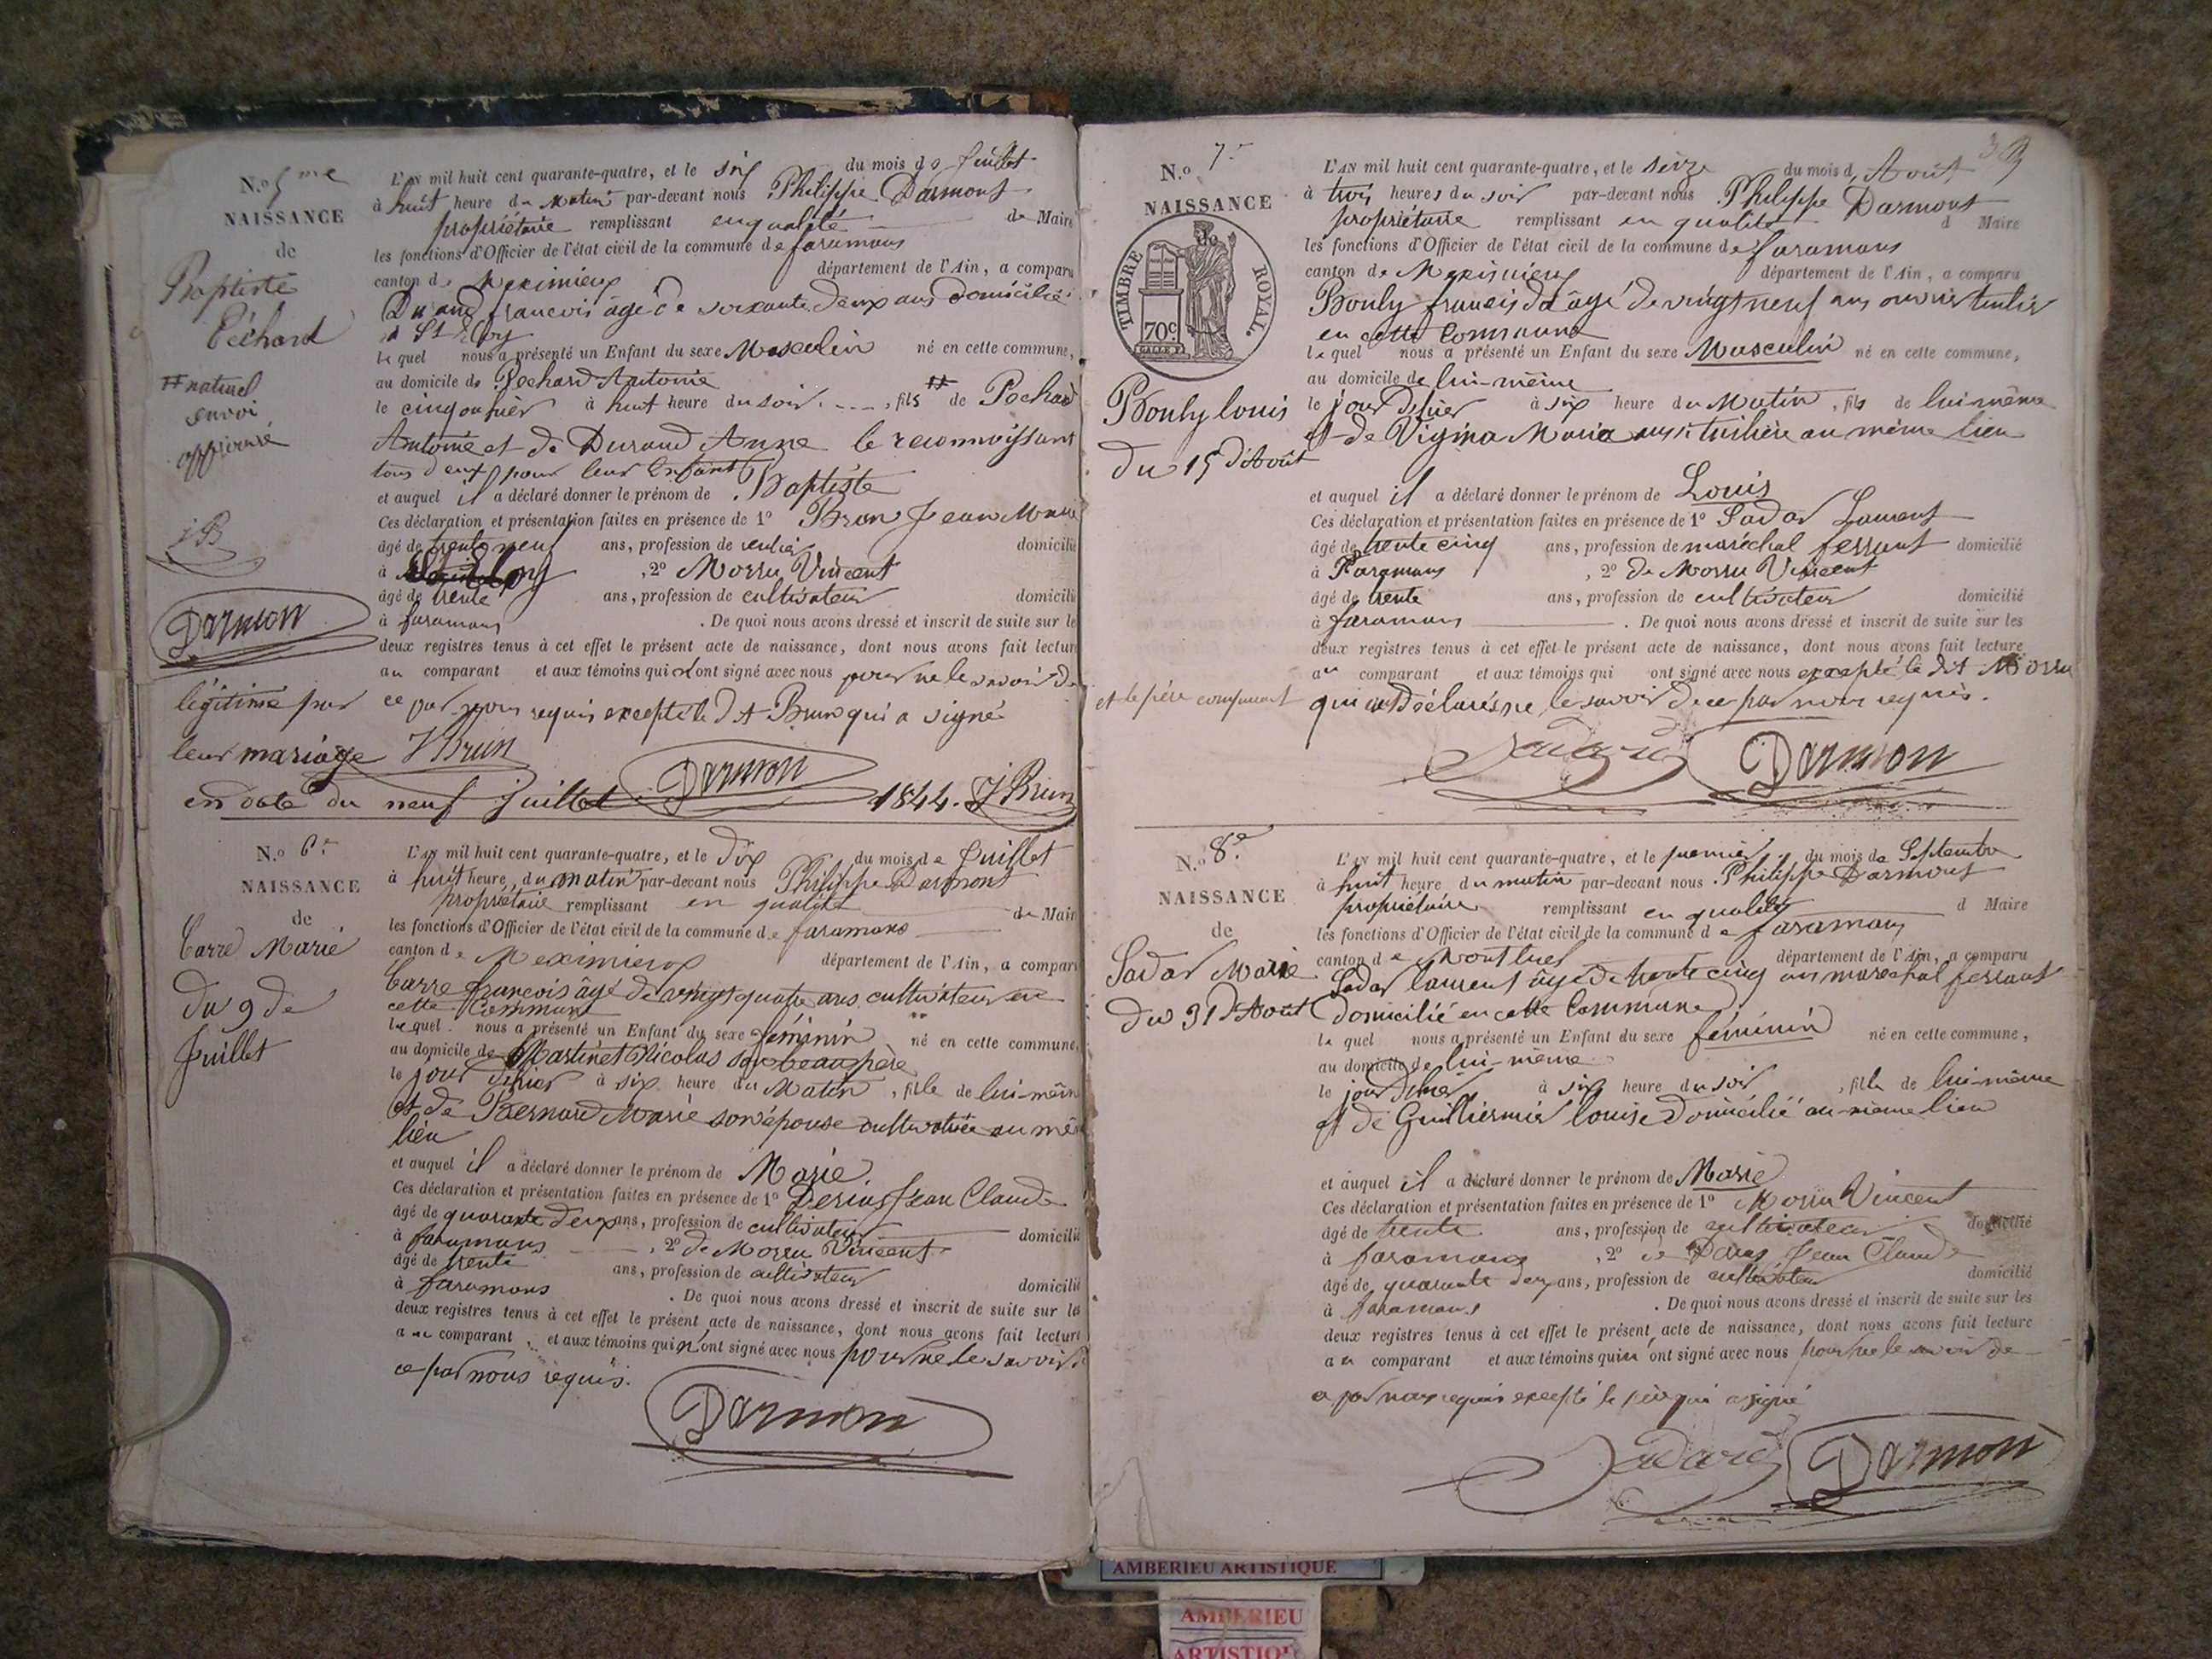 N.o 5me
NAISSANCE
de
Baptiste
Péchard
naturel
envoi
approuvé
JB
Darmon
légitimé par
leur mariage
en date du neuf Juillet 1844. J Brun
L'AN mil huit cent quarante-quatre, et le six du mois de Juillet
à huit heure du Matin par-devant nous Philippe Darmont
propriétaire remplissant en qualité de Maire
les fonctions d'Officier de l'état civil de la commune de faramans
canton de Meximieux département de l'Ain, a comparu
Durand francois âgé de soixante deux ans domicilié
à St Eloy
lequel nous a présenté un Enfant du sexe Masculin né en cette commune,
au domicile de Pechard Antoine
le cinq ou hier à huit heure du soir, fils de Pechard
Antoine et de Durand Anne le reconnaissant
tous deux pour leur Enfant
et auquel il a déclaré donner le prénom de Baptiste
Ces déclaration et présentation faites en présence de 1° Brun Jean Marie
âgé de trente neuf ans, profession de rentier domicilié
à St Eloy, 2° Morru Vincent
âgé de trente ans, profession de cultivateur domicilié
à faramans. De quoi nous avons dressé et inscrit de suite sur le
deux registres tenus à cet effet le présent acte de naissance, dont nous avons fait lecture
au comparant et aux témoins qui n'ont signé avec nous pour ne le savoir de
ce par nous requis excepté le dit Brun qui a signé
J Brun
Darmon
N.o 6e
NAISSANCE
de
Carre Marie
du 9 de
Juillet
L'AN mil huit cent quarante-quatre, et le dix du mois de Juillet
à huit heure du matin par-devant nous Philippe Darmont
propriétaire remplissant en qualité de Maire
les fonctions d'Officier de l'état civil de la commune de faramans
canton de Meximieux département de l'Ain, a comparu
Carre francois âgé de vingt quatre ans cultivateur en
cette Commune
lequel nous a présenté un Enfant du sexe féminin né en cette commune,
au domicile de Martinet Nicolas son beau père
le jour d'hier à six heure du Matin, fille de lui-même
et de Bernard Marie son épouse cultivatrice au même
lieu
et auquel il a déclaré donner le prénom de Marie
Ces déclaration et présentation faites en présence de 1° Jean Claude
âgé de quarante deux ans, profession de cultivateur domicilié
à faramans, 2° de Morru Vincent
âgé de trente ans, profession de cultivateur domicilié
à faramans. De quoi nous avons dressé et inscrit de suite sur les
deux registres tenus à cet effet le présent acte de naissance, dont nous avons fait lecture
au comparant et aux témoins qui n'ont signé avec nous pour ne le savoir de
ce par nous requis.
Darmon
N.o 7e
NAISSANCE
TIMBRE ROYAL.
70c
Bouly louis
du 15 d'Août
L'AN mil huit cent quarante-quatre, et le seize du mois d'Août
à trois heures du soir par-devant nous Philippe Darmont
propriétaire remplissant en qualité d Maire
les fonctions d'Officier de l'état civil de la commune de faramans
canton de Meximieux département de l'Ain, a comparu
Bouly francois âgé de vingt neuf ans ouvrier tuilier
en cette Commune
lequel nous a présenté un Enfant du sexe Masculin né en cette commune,
au domicile de lui-même
le jour d'hier à six heure du Matin, fils de lui-même
et de Maria aussi tuilière au même lieu
et auquel il a déclaré donner le prénom de Louis
Ces déclaration et présentation faites en présence de 1° Sadar Laurent
âgé de trente cinq ans, profession de maréchal ferrant domicilié
à Faramans, 2° de Morru Vincent
âgé de trente ans, profession de cultivateur domicilié
à faramans. De quoi nous avons dressé et inscrit de suite sur les
deux registres tenus à cet effet le présent acte de naissance, dont nous avons fait lecture
au comparant et aux témoins qui ont signé avec nous excepté le dit Morru
et le père comparant qui ont déclarés ne le savoir de ce par nous requis.
Darmon
N.o 8e
NAISSANCE
de
Sadar Marie
du 31 d'Août
L'AN mil huit cent quarante-quatre, et le premier du mois de Septembre
à huit heure du matin par-devant nous Philippe Darmont
propriétaire remplissant en qualité d Maire
les fonctions d'Officier de l'état civil de la commune de faramans
canton de Montluel département de l'Ain, a comparu
Sadar laurent âgé de trente cinq ans maréchal ferrant
domicilié en cette Commune
lequel nous a présenté un Enfant du sexe féminin né en cette commune,
au domicile de lui-même
le jour d'hier à six heure du soir, fille de lui-même
et de Guillermier louise domicilié au même lieu
et auquel il a déclaré donner le prénom de Marie
Ces déclaration et présentation faites en présence de 1° Morru Vincent
âgé de trente ans, profession de cultivateur domicilié
à faramans, 2° de Jean Claude
âgé de quarante deux ans, profession de cultivateur domicilié
à faramans. De quoi nous avons dressé et inscrit de suite sur les
deux registres tenus à cet effet le présent acte de naissance, dont nous avons fait lecture
au comparant et aux témoins qui n'ont signé avec nous pour ne le savoir de
ce par nous requis excepté le père qui a signé
Darmon
AMBERIEU ARTISTIQUE
AMBERIEU
ARTISTIQUE